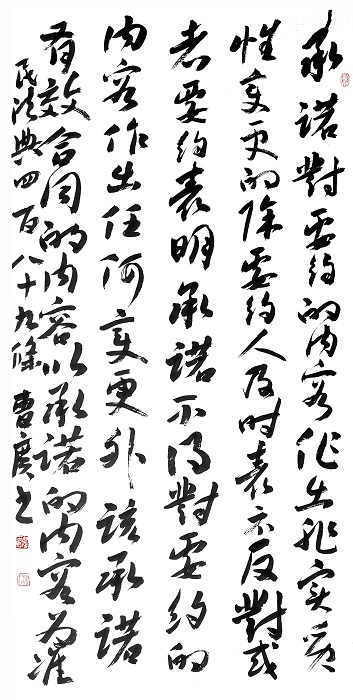 承諾對要約的内容作出非实质
性变更的除要約人及时表示反對或
者要約表明承諾不得對要約的
内容作出任何变更外該承諾
有效合同的内容以承諾的内容为准
民法典四百八十九條 曹廣书